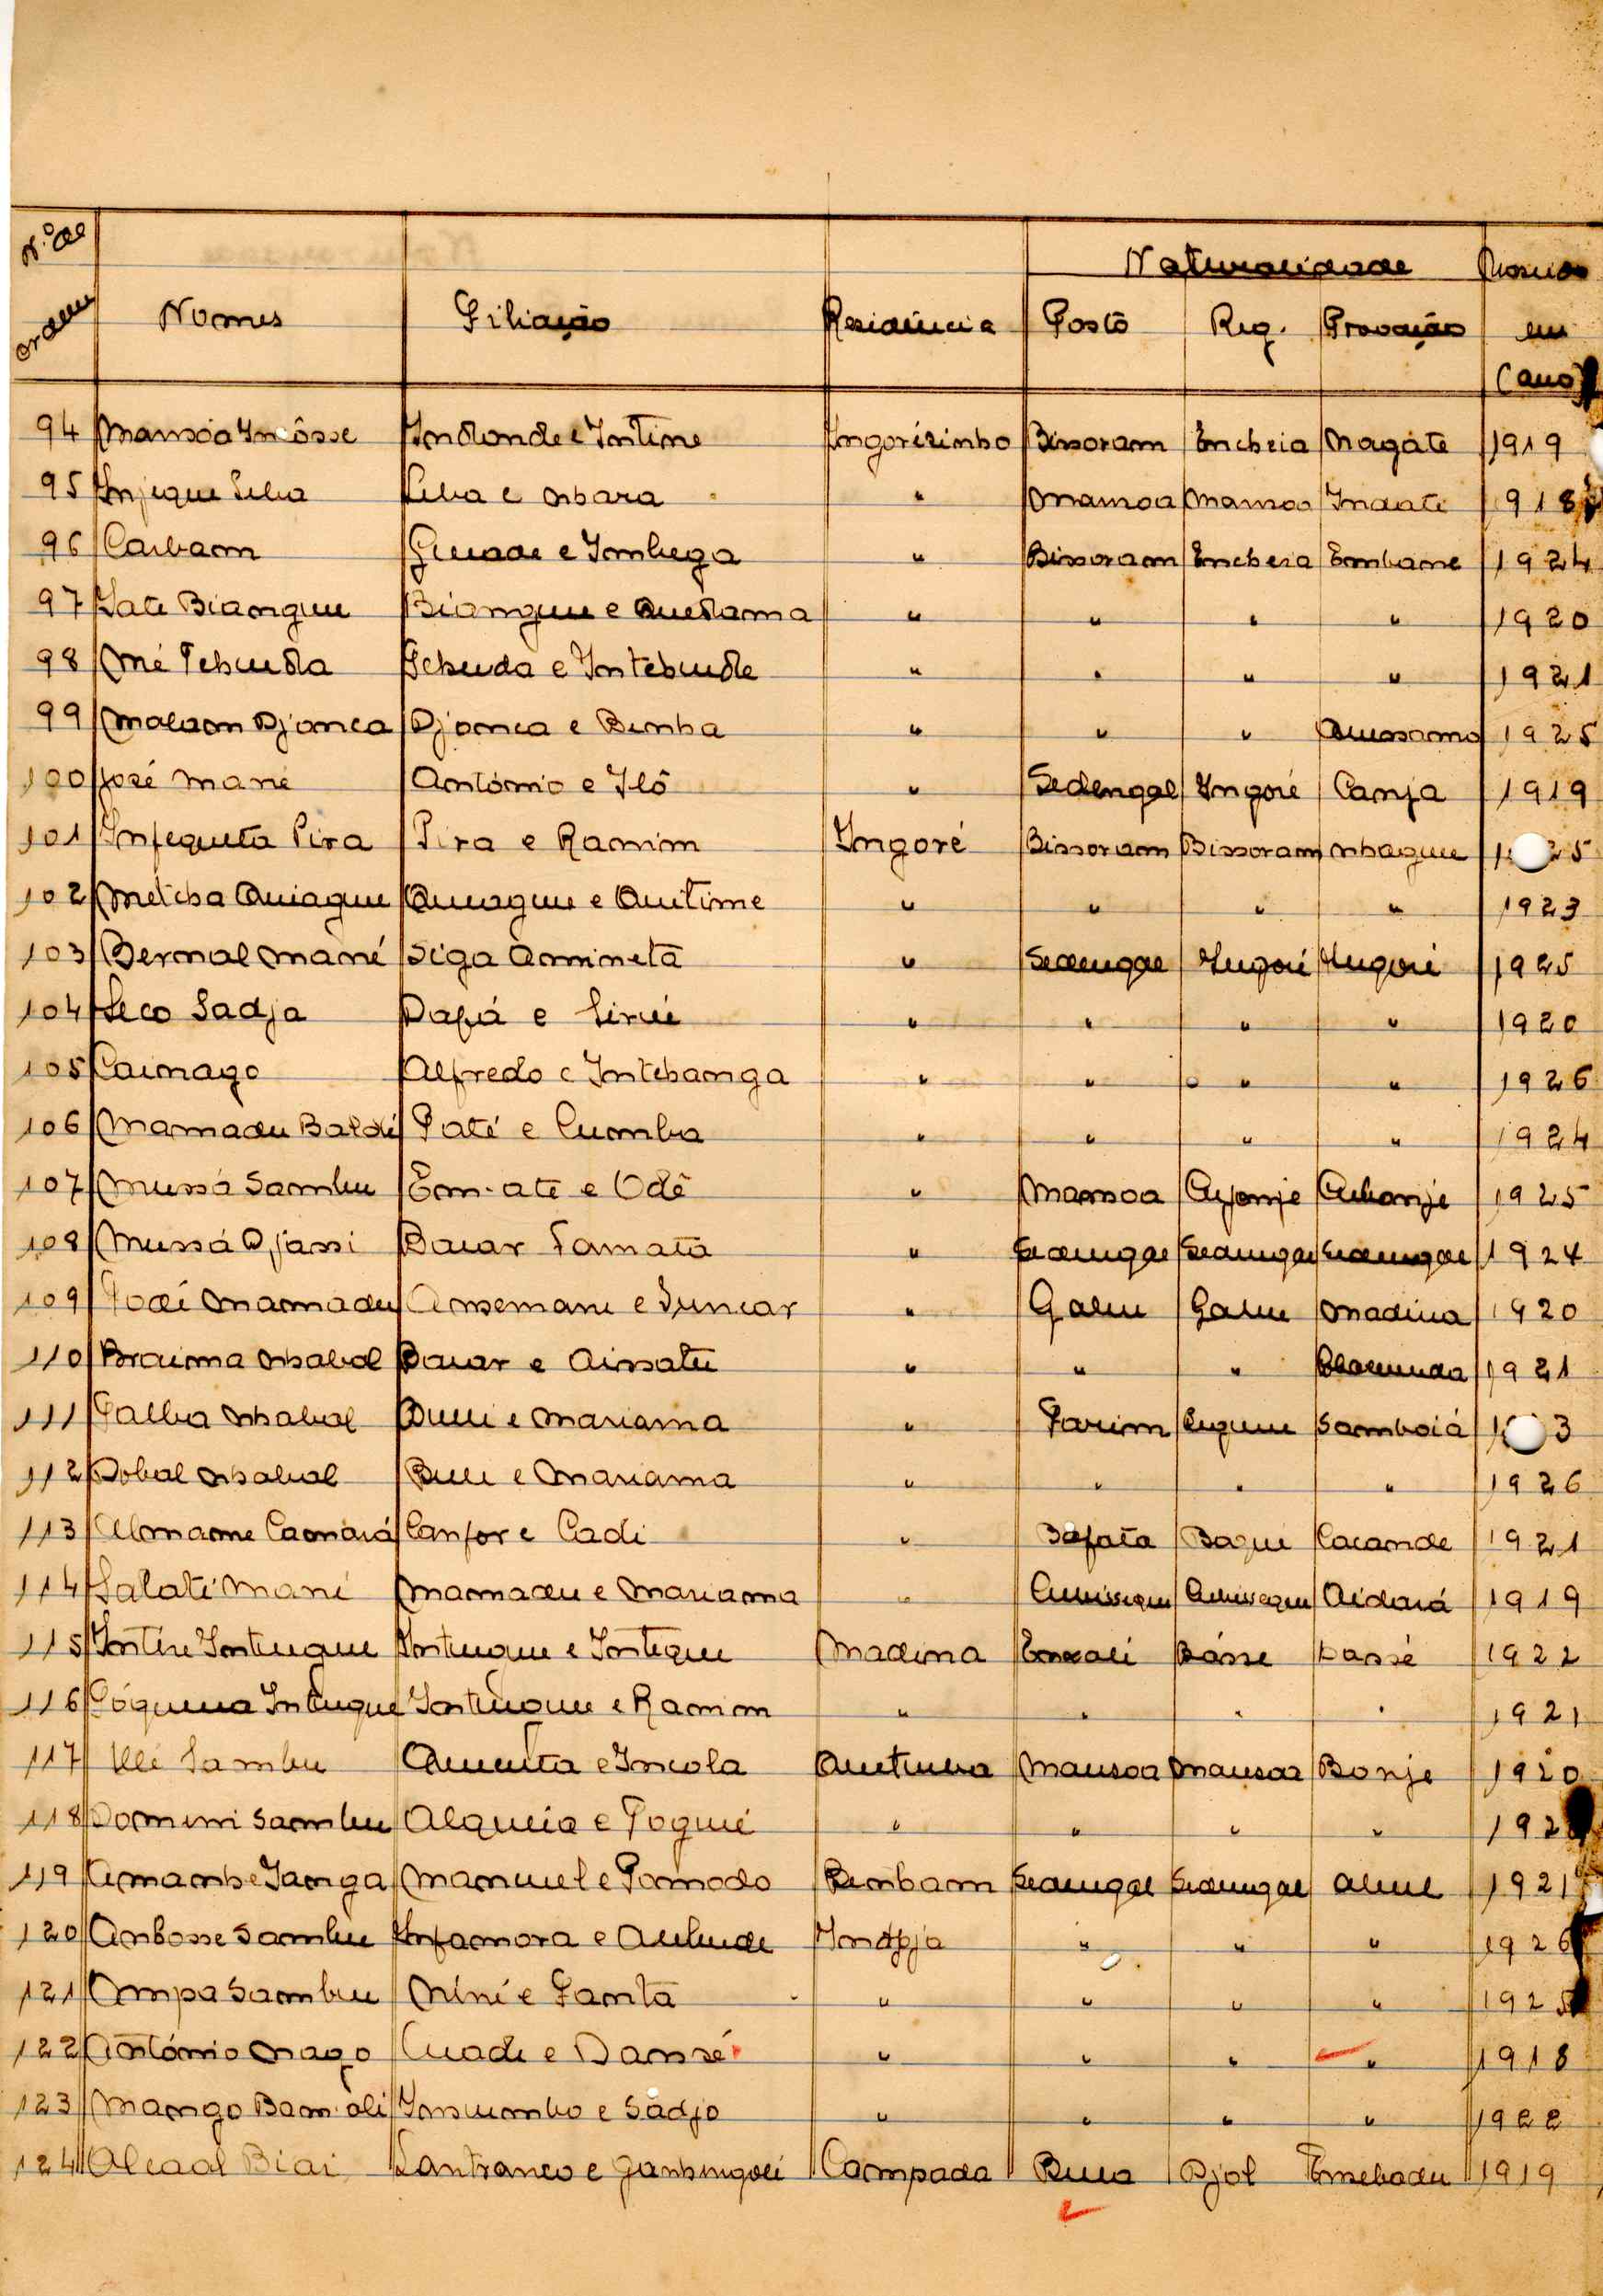 N.º de ordem Nomes Filiação Residência Naturalidade Posto Reg. Povoação Nascido em (ano)
94 Mansóa Incôsse Indonde e Intine Ingorézinho Bissoram Encheia Nagate 1919
95 Injique Seba Seba e Nhara " Mansoa Mansoa Indati 1918
96 Caibam Guiade e Imbega " Bissoram Encheia Embane 1924
97 Iate Biangue Biangue e Quedama " " " " 1920
98 Mé Tchuda Tchuda e Intchude " " " " 1921
99 Malam Djanca Djanca e Binha " " " Quissamo 1925
100 José Mané António e Iló " Sedengal Ingoré Canja 1919
101 Infequeta Pira Pira e Ramim Ingoré Bissoram Bissoram Nhague 5
102 Metcha Quiague Quiague e Quitime " " " " 1923
103 Bernal Mané Siga Amineta " Sedengal Ingoré Ingoré 1925
104 Seco Sadja Dafá e Sirié " " " " 1920
105 Caimago Alfredo e Intchanga " " " " 1926
106 Mamadu Baldé Paté e Cumba " " " " 1924
107 Mussá Sambu Em-ate e Odê " Mansoa 1925
108 Mussá Djassi Bacar Famata " Sedengal Sedengal Sedengal 1924
109 Fodé Mamadu Ansemane e Juncar " Gabu Gabu Madina 1920
110 Braima Nhabal Bacar e Aissatu " " " 1921
111 Galba Nhabal Buli e Mariama " Farim Samboiá 3
112 Dobal Nhabal Buli e Mariama " " " " 1926
113 Almame Camará Canfor e Cadi " Bafata Cacande 1921
114 Salati Mané Mamadu e Mariama " Aidará 1919
115 Intire Intugue Intugue e Intique Madina Enxalé Básse Dassé 1922
116 Intugue Intugue e Ramim " " " " 1921
117 Sambu e Incola Mansoa Mansoa Bonje 1920
118 Domini Sambu Alqueia e Foqué " " " " 192
119 Amanhe Ianga Manuel e Pomodo Binham Sedengal Sedengal 1921
120 Anbosse Sambu Infamora e " " " 1926
121 Ompa Sambu Nini e Fanta " " " " 192
122 António Nago Cuade e Dansé " " " " 1918
123 Mango Bam-oli Insumbo e Sadjo " " " " 1922
124 Alcaal Biai Lantranco e Campada Buba Djol 1919